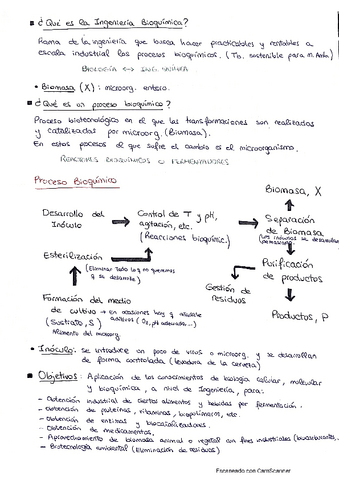 ¿Qué es la Ingeniería Bioquímica?
Rama de la ingeniería que busca hacer practicables y rentables a
escala industrial los procesos bioquímicos. (Tb. sostenible para M. Amb)
BIOLOGÍA <-> ING. QUÍMICA
Biomasa (X): microorg. entero.
¿Qué es un proceso bioquímico?
Proceso biotecnológico en el que las transformaciones son realizadas
y catalizadas por microorg. (Biomasa).
En estos pocesos el que sufre el cambio es el microorganismo.
REACTORES BIOQUÍMICOS O FERMENTADORES
Proceso Bioquímico
Biomasa, X
Desarrollo del
Inóculo
Control de T y pH,
agitación, etc.
(Reacciones bioquímic.)
Separación
de Biomasa
(los inóculos se desarrollan
Esterilización
(Eliminar todo lo q no queremos
q se desarrolle)
Purificación
de productos
Gestión de
Residuos
Formación del medio
de cultivo → en ocasiones hay q añadirle
aditivos (O₂, pH adecuado...)
(Sustrato, S)
Alimento del microorg.
Productos, P
Inóculo: se introduce un poco de virus o microorg. y se desarrollan
de forma controlada (levadura de la cerveza)
Objetivos: Aplicación de los conocimientos de biología celular, molecular
y bioquímica, a nivel de Ingeniería, para:
- Obtención industrial de ciertos alimentos y bebidas por fermentación.
- Obtención de proteínas, vitaminas, biopolímeros, etc.
- Obtención de enzimas y biocatalizadores.
- Obtención de medicamentos.
- Aprovechamiento de biomasa animal o vegetal con fines industriales (biocarburantes..
- Biotecnología ambiental (Eliminación de residuos)
Escaneado con CamScanner